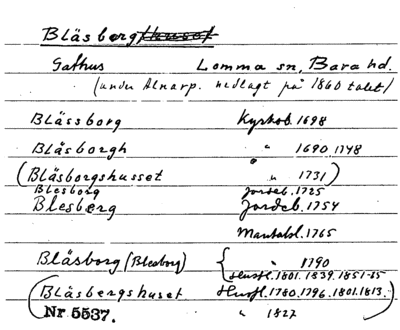 Bläsberg/huset/
Gathus Lomma sn, Bara hd.
(under Alnarp. nedlagt på 1860 talet)
Blässborg Kyrkob. 1698
Blåsborgh " 1690, 1748
(Blåsborgshusset " 1731)
Blesborg Jordeb. 1725
Blesberg Jordeb. 1754
Mantalsl. 1765
Blåsborg (Blesborg) { " 1790
Husfl. 1801. 1839. 1851-55
(Bläsbergshuset Husfl. 1780. 1796. 1801. 1813.
Nr 5537. " 1827